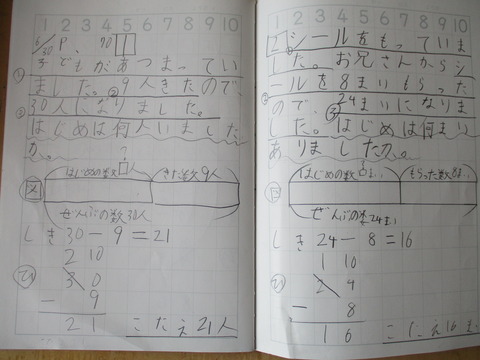 1 2 3 4 5 6 7 8 9 10
6/30 P.70
子どもがあつまってい
ました。②9人きたので、
30人になりました。
はじめは何人いました
か。
はじめの数□人 きた数9人
図
ぜんぶの数30人
しき 30－9＝21
2 10
ひ 3 0
－ 9
2 1 こたえ21人
1 2 3 4 5 6 7 8 9 10
2 シールをもっていま
した。お兄さんからシ
ールを8まいもらった
ので、③24まいになりま
した。はじめは何まい
ありましたか。
はじめの数□まい もらった数8まい
図
ぜんぶの数24まい
しき 24－8＝16
1 10
ひ 2 4
－ 8
1 6 こたえ16まい